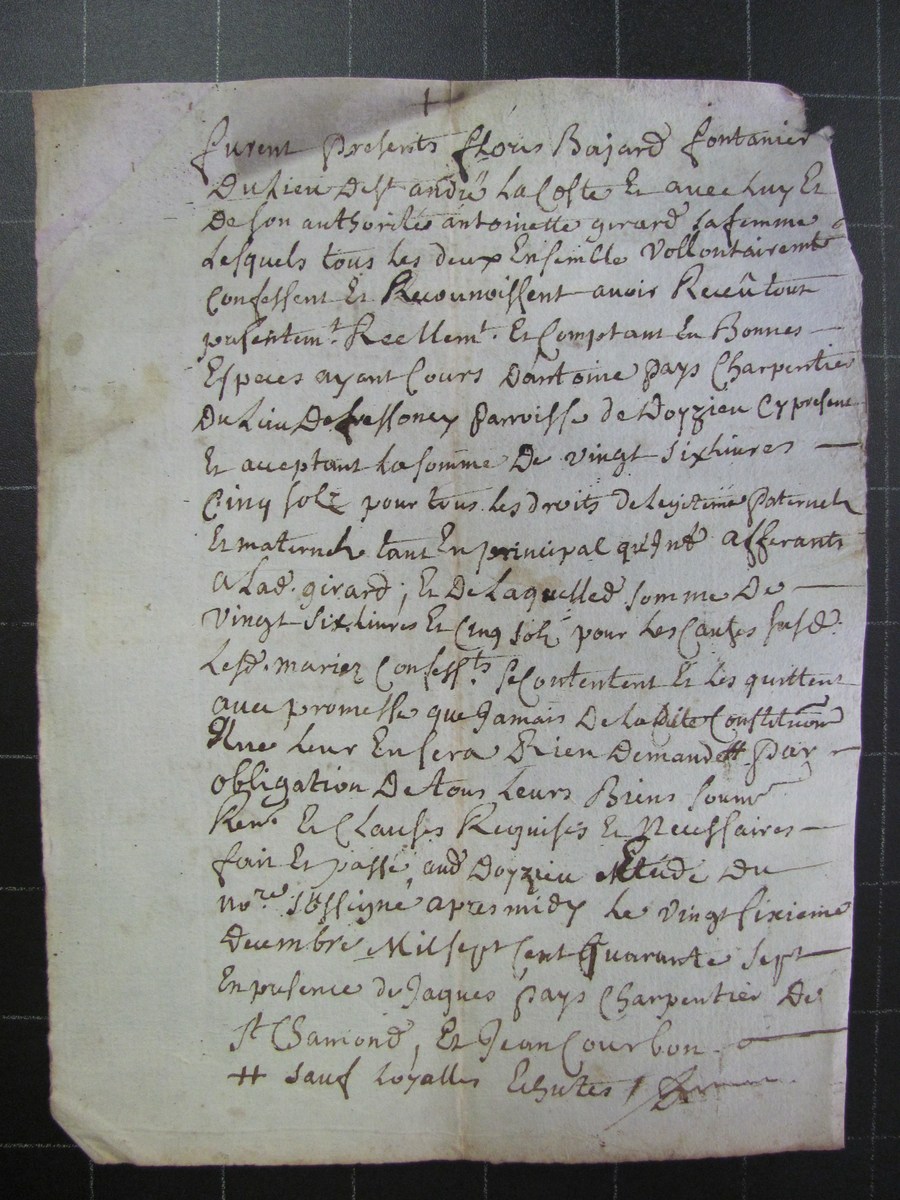 furent presents floris Bajard fontanier
Du Lieu De st andré La Coste Et avec Luy Et
De son authorité antoinette girard sa femme
Lesquels tous Les deux Ensemble vollontairemt
Confessent Et Reconnoissent avoir Receû tout
presentemt. Reellemt. Et Comptant En Bonnes
Especes ayant Cours D'antoine pays Charpentier
Du Lieu De fressoney parroisse de Doyzieu Cy present
Et acceptant La somme De vingt six Livres
Cinq solz pour tous Les droits de legitime paternelz
Et maternelz tant En principal qu'Intt afferants
a Lad. girard, Et De Laquelled somme De
vingt six Livres Et Cinq solz pour Les Causes susd.
Lesd. mariez Confessts se Contentent Et Les quittent
avec promesse que Jamais De La Dite Constitution
Ne Leur En sera Rien Demandé # par
obligation De tous Leurs Biens soumn
Renn Et Clauses Requises Et Necessaires
fait Et passé, aud Doyzieu Etude Du
nore. sssigne apres midy Le vingt sixieme
Decembre Mil sept Cent Quarante sept
En presence de Jaques pays Charpentier De
st Chamond, Et Jean Courbon.
# sauf Loyalles Echutes /